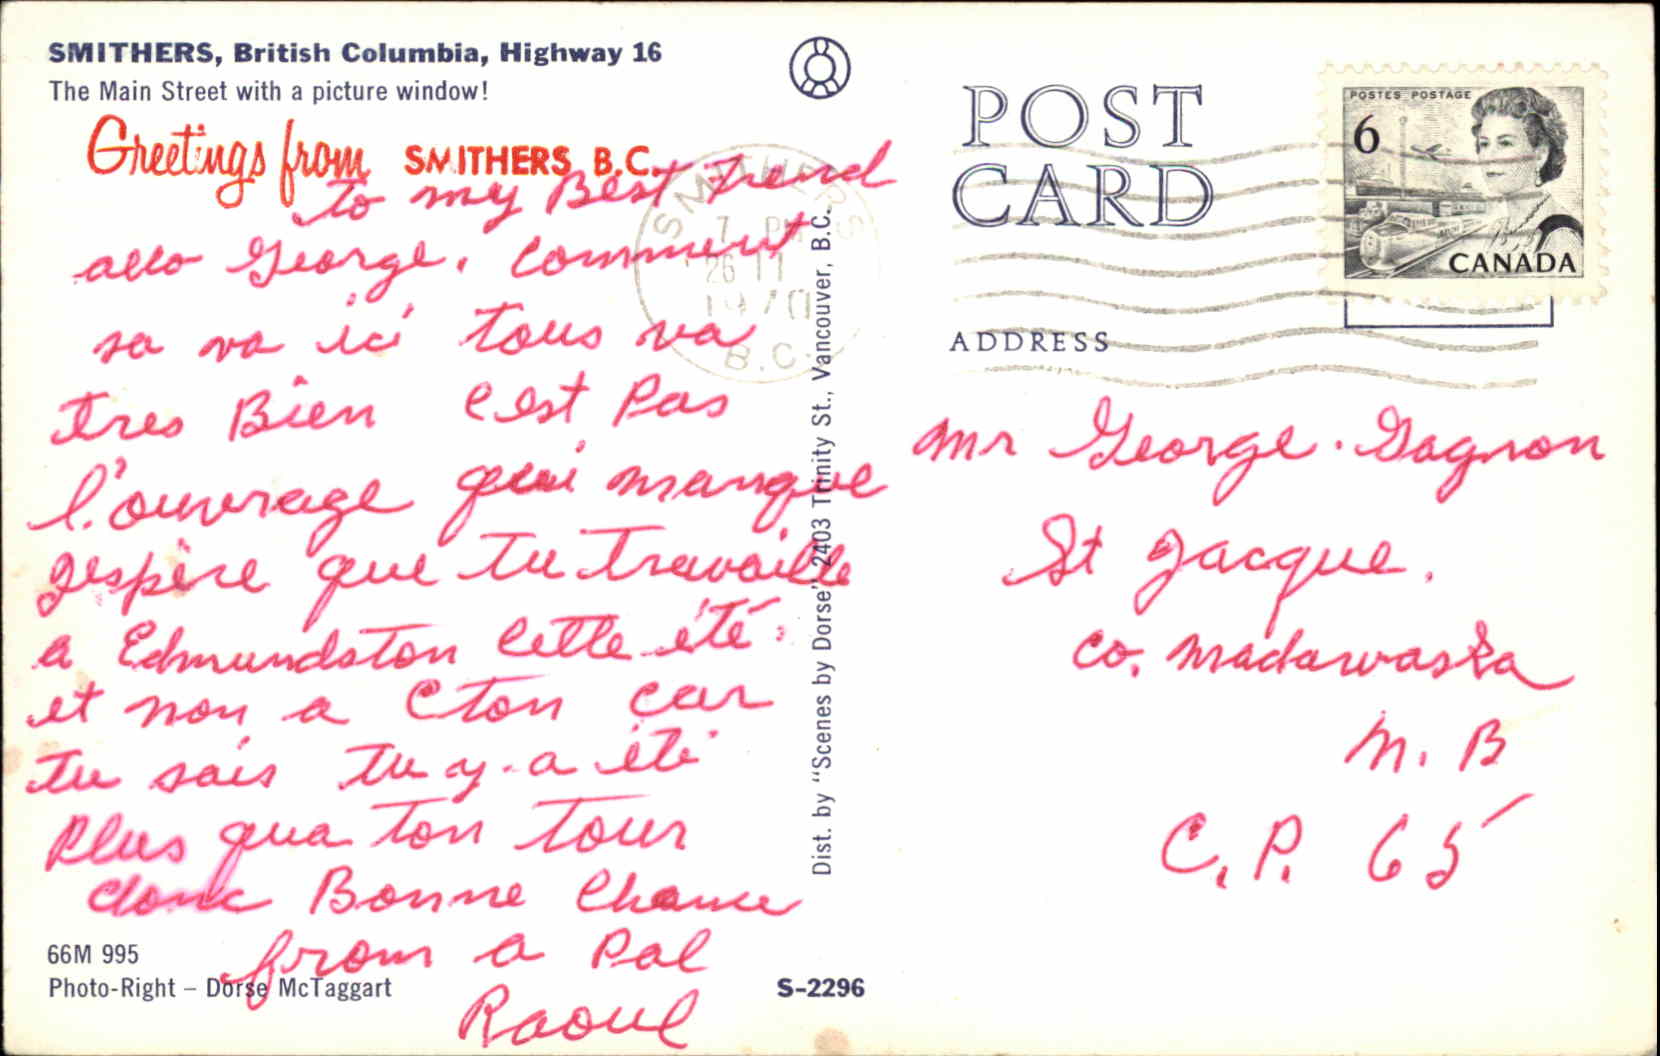 SMITHERS, British Columbia, Highway 16
The Main Street with a picture window!
Greetings from SMITHERS, B.C.
to my Best Friend
allo George. Comment
sa va ici tous va
tres Bien C'est Pas
l'ouvrage qui manque
J'espère que tu travaille
a Edmundston cette été
et non a Cton car
tu sais tu y-a été
Plus qua ton tour
donc Bonne Chance
from a Pal
Raoul
66M 995
Photo-Right – Dorse McTaggart
S-2296
Dist. by "Scenes by Dorse" 2403 Trinity St., Vancouver, B.C.
SMITHERS
7 PM
26 11
1970
B.C.
POST
CARD
ADDRESS
POSTES POSTAGE
6
CANADA
Mr George. Gagnon
St Jacque.
Co. Madawaska
N. B
C. P. 65